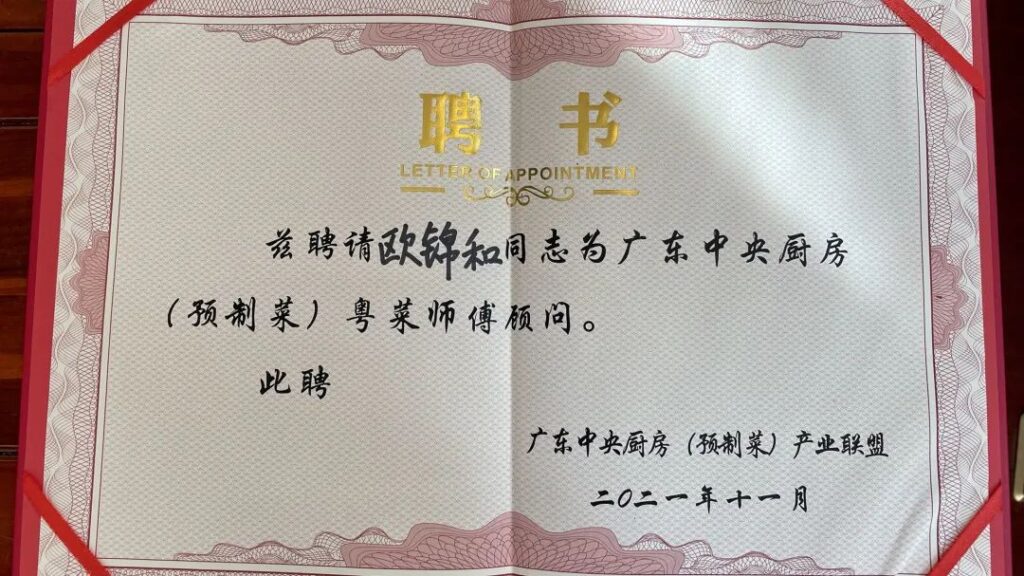 聘书
LETTER OF APPOINTMENT
兹聘请欧锦和同志为广东中央厨房
（预制菜）粤菜师傅顾问。
此聘
广东中央厨房（预制菜）产业联盟
二〇二一年十一月